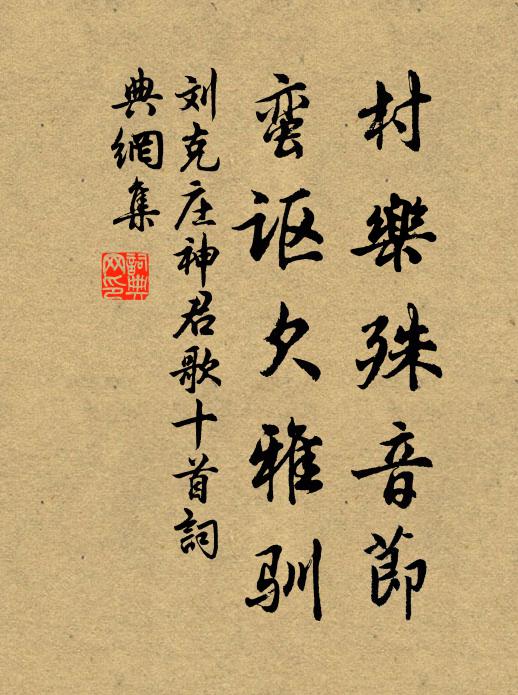 村樂殊音節
蛮讴欠雅驯
刘克庄神君歌十首詞
典網集
詞典網印